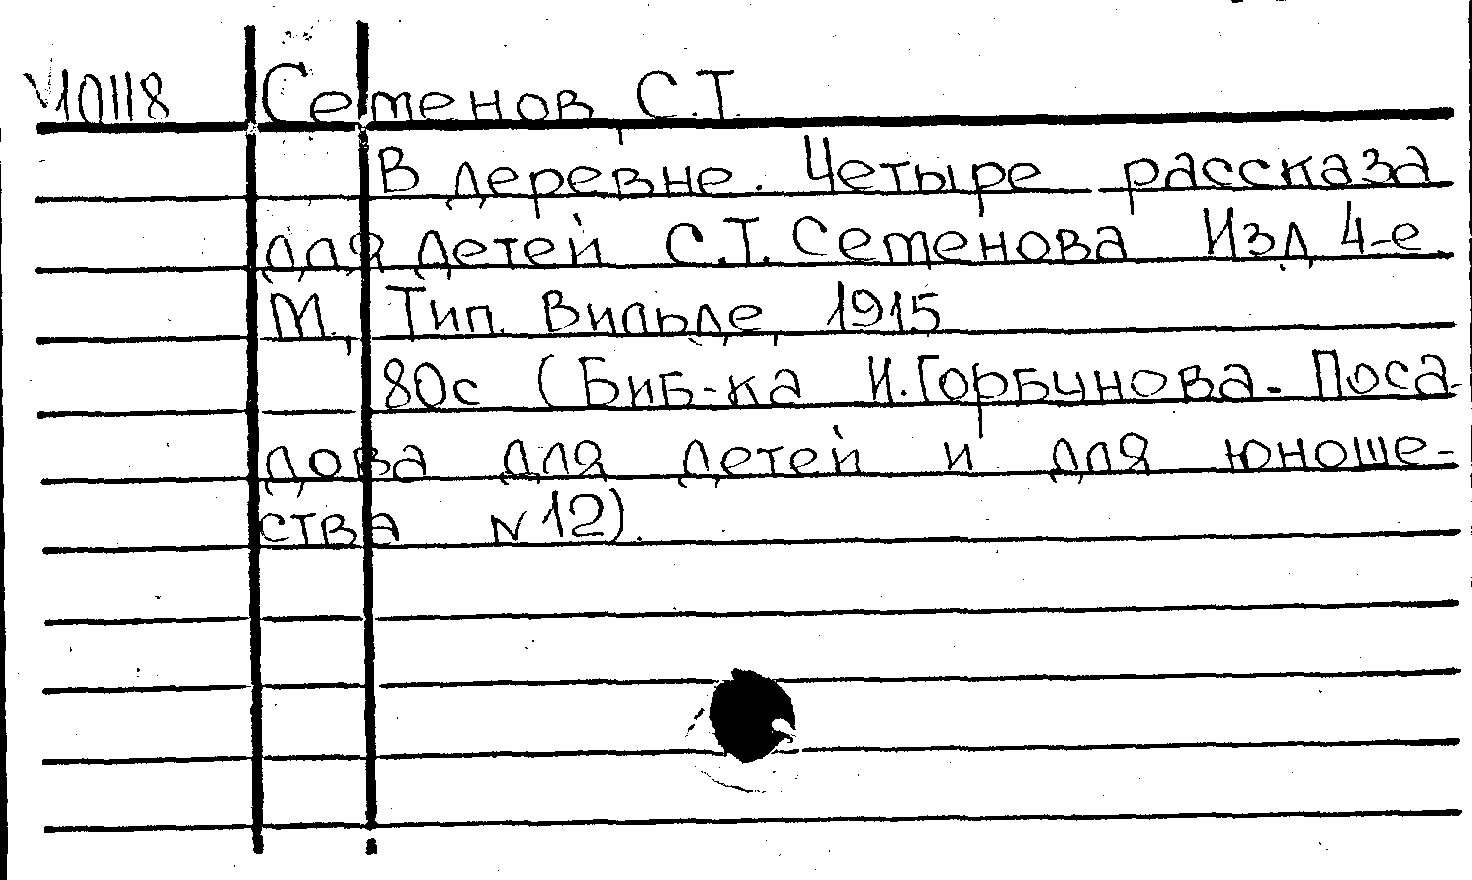 V10118 Семенов, С.Т.
В деревне. Четыре рассказа
для детей С.Т. Семенова Изд. 4-е.
М., Тип. Вильде, 1915
80с (Биб-ка И. Горбунова-Поса-
дова для детей и для юноше-
ства N 12).